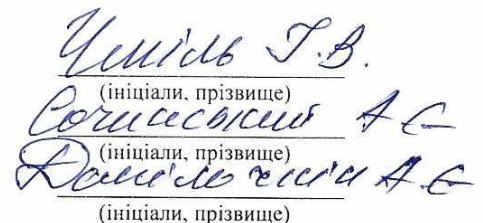 Чміль Т.В.
(ініціали, прізвище)
Сочинський А Є
(ініціали, прізвище)
А.Є
(ініціали, прізвище)